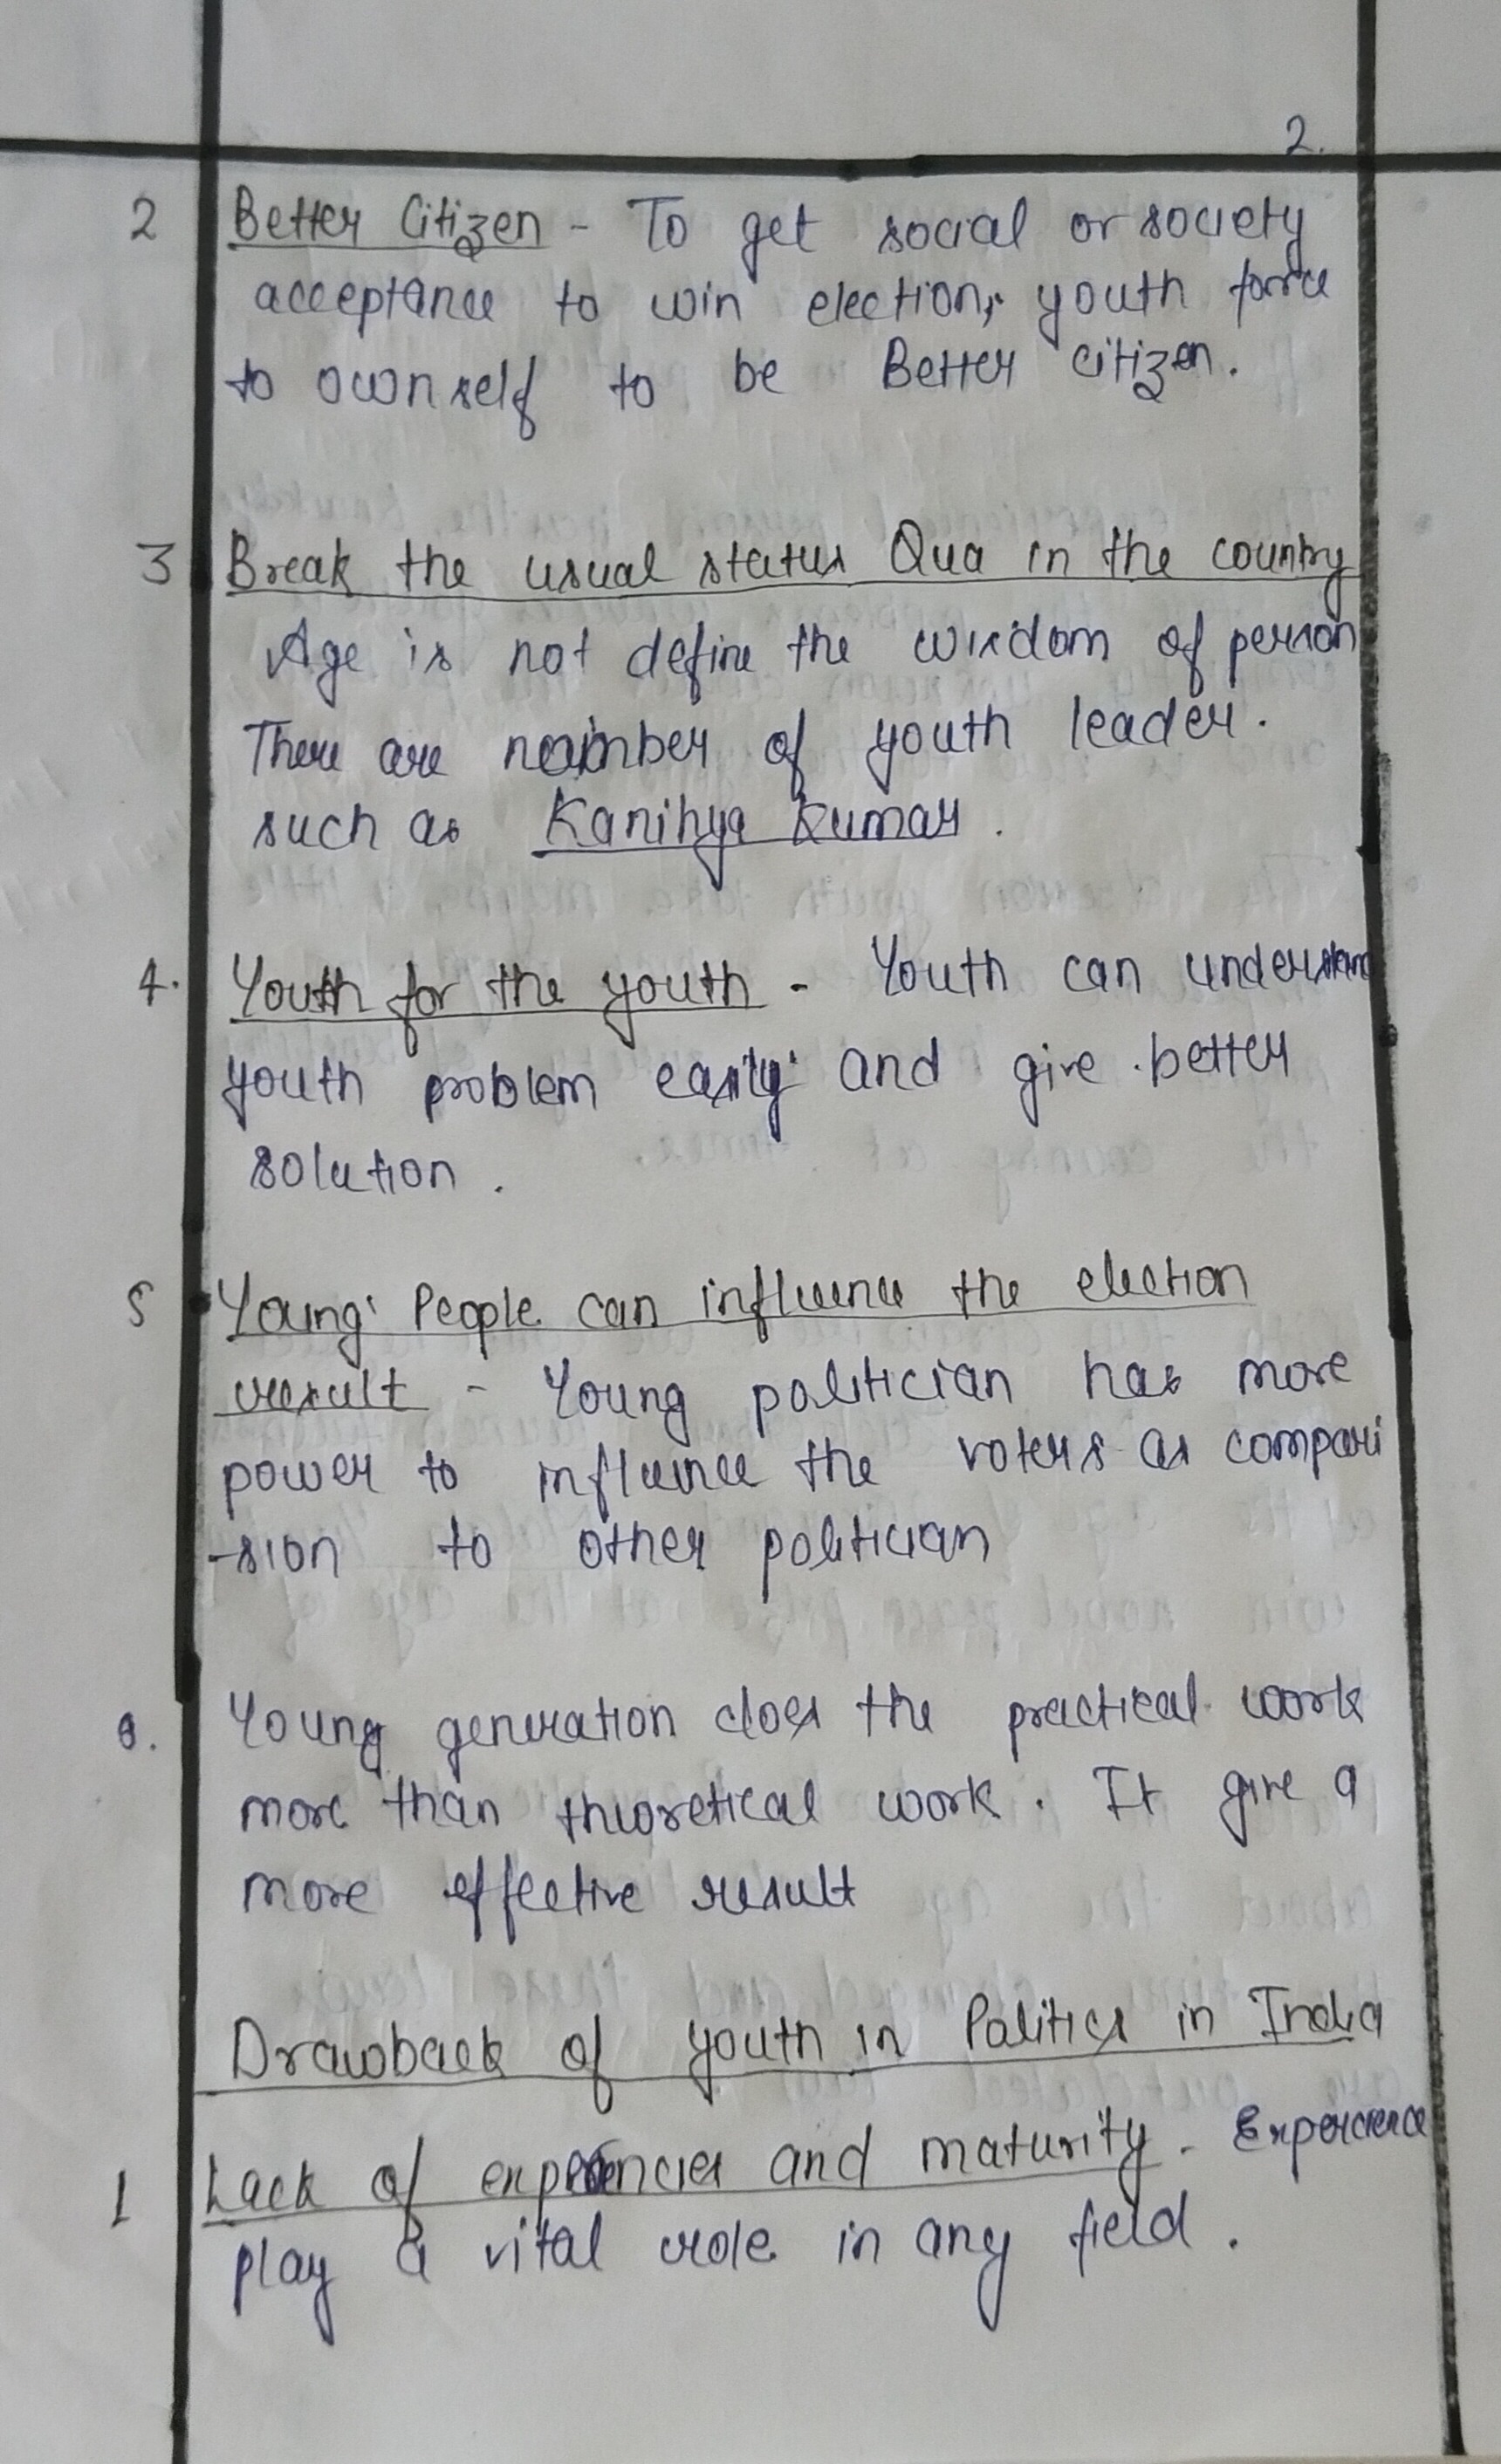 2.
2 Better Citizen - To get social or society
acceptance to win election, youth force
to ownself to be Better citizen.
3 Break the usual status Qua in the country
Age is not define the wisdom of person
There are number of youth leader.
such as Kanihya Kumar.
4. Youth for the youth - Youth can understand
youth problem easily and give better
solution.
5 Young People can influence the election
result - Young politician has more
power to influence the voters as compari
-sion to other politician
6. Young generation does the practical work
more than theoretical work. It give a
more effective result
Drawback of youth in Politics in India
1 Lack of and maturity - Experience
play a vital role in any field.